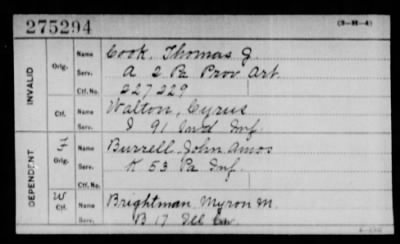 275294
(3-H-4)
INVALID
Orig.
Name Cook, Thomas J.
Serv. A 2 Pa Prov Art.
Ctf. No. 227229
Ctf.
Name Walton, Cyrus
Serv. I 91 Ind Inf.
DEPENDENT
Orig.
Name Burrell, John Amos
Serv. K 53 Pa Inf.
Ctf. No.
W
Ctf.
Name Brightman Myron M.
Serv. B 17 Ill Cav.